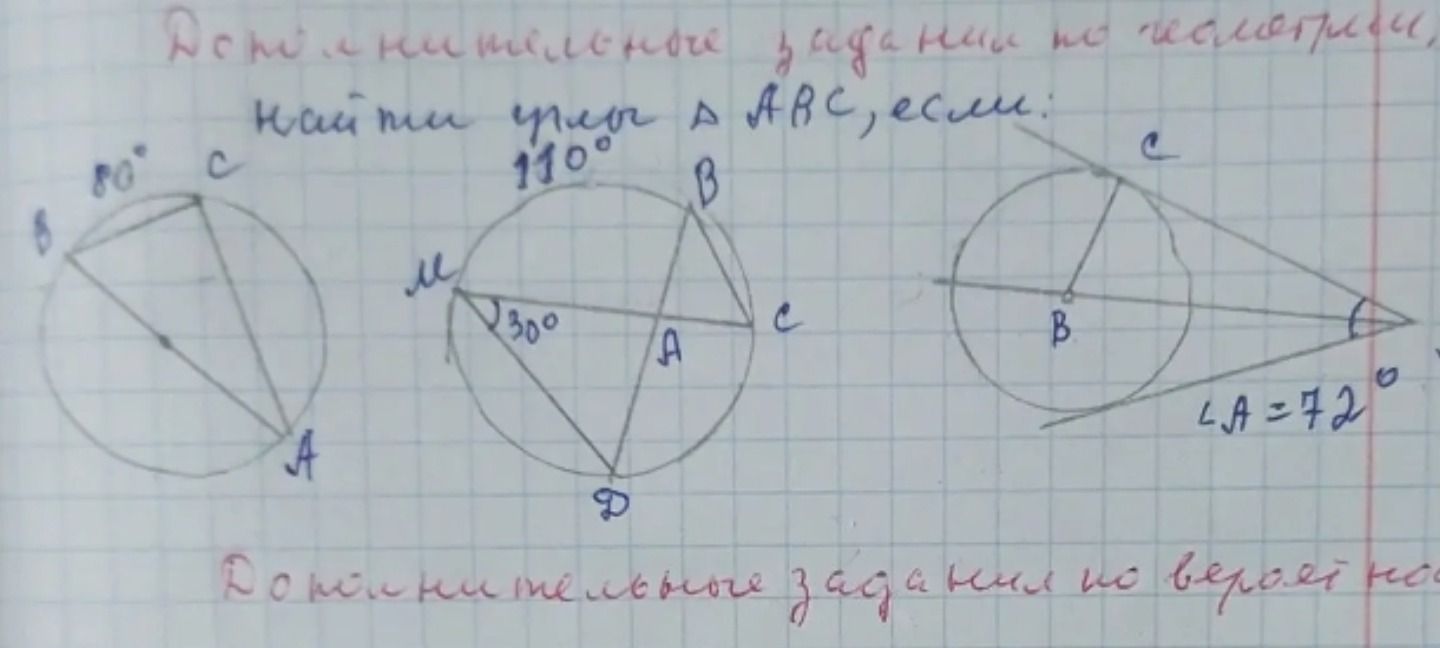 Дополнительные задания по геометрии.
Найти углы △ ABC, если:
80° C
B
A
110°
B
M
30°
A
C
D
C
B
∠A = 72°
Дополнительные задания по